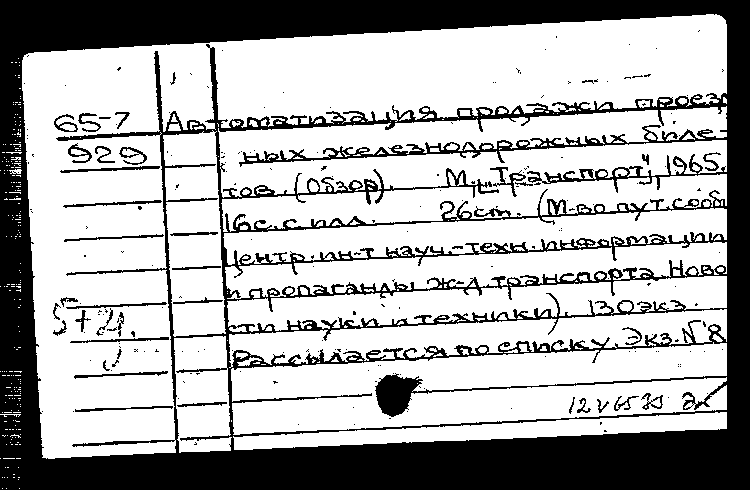 65-7 Автоматизация продажи проезд
929 ных железнодорожных биле-
тов. (Обзор). М., „Транспорт", 1965.
16с. с илл. 26см. (М-во пут. сооб
Центр. ин-т науч.-техн. информации
и пропаганды ж-д. транспорта. Ново
сти науки и техники). 130экз.
Рассылается по списку. Экз. № 8